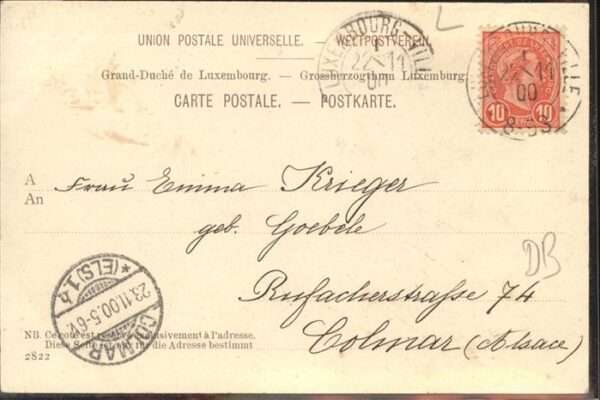 L
UNION POSTALE UNIVERSELLE. — WELTPOSTVEREIN.
Grand-Duché de Luxembourg. — Grossherzogthum Luxemburg.
CARTE POSTALE. — POSTKARTE.
LUXEMBOURG-VILLE
22 11
00
22 11
00
8-
10 10
A
An
Frau Emma Krieger
geb. Goebele
Rufacherstraße 74
Colmar (Alsace)
DB
COLMAR
*(ELS) 1.
23.11.00.5-6
NB. Ce côté est exclusivement à l'adresse.
Diese Seite ist nur für die Adresse bestimmt
2822